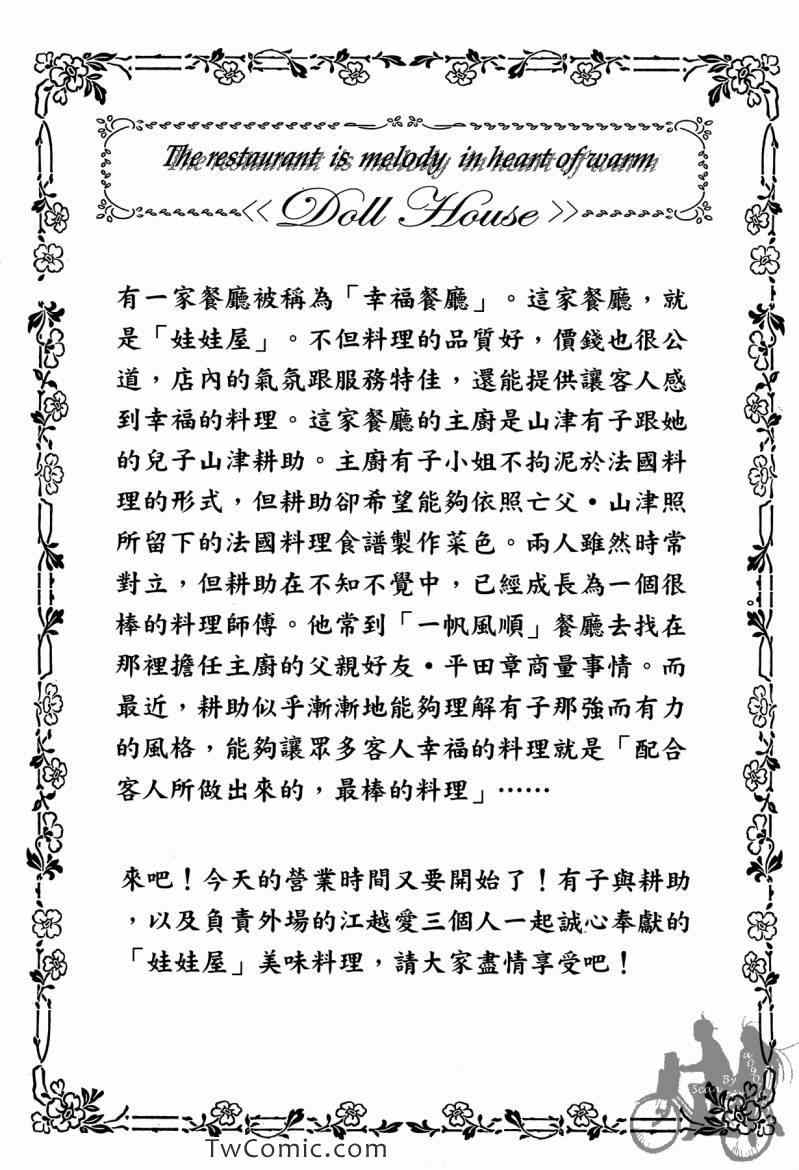 The restaurant is melody in heart of warm
<< Doll House >>
有一家餐廳被稱為「幸福餐廳」。這家餐廳，就
是「娃娃屋」。不但料理的品質好，價錢也很公
道，店內的氣氛跟服務特佳，還能提供讓客人感
到幸福的料理。這家餐廳的主廚是山津有子跟她
的兒子山津耕助。主廚有子小姐不拘泥於法國料
理的形式，但耕助卻希望能夠依照亡父•山津照
所留下的法國料理食譜製作菜色。兩人雖然時常
對立，但耕助在不知不覺中，已經成長為一個很
棒的料理師傅。他常到「一帆風順」餐廳去找在
那裡擔任主廚的父親好友•平田章商量事情。而
最近，耕助似乎漸漸地能夠理解有子那強而有力
的風格，能夠讓眾多客人幸福的料理就是「配合
客人所做出來的，最棒的料理」……
來吧！今天的營業時間又要開始了！有子與耕助
，以及負責外場的江越愛三個人一起誠心奉獻的
「娃娃屋」美味料理，請大家盡情享受吧！
TwComic.com